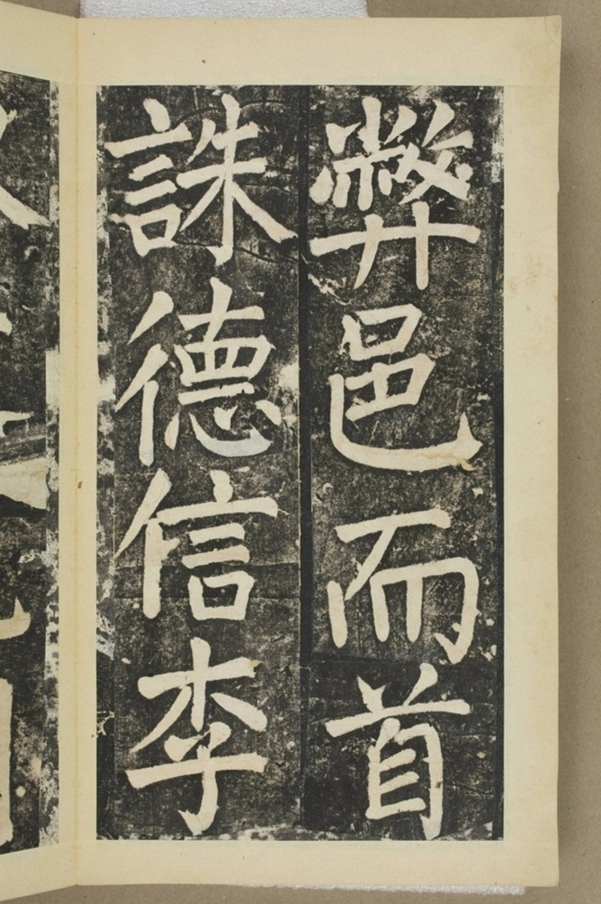 弊邑而首
誅德信李